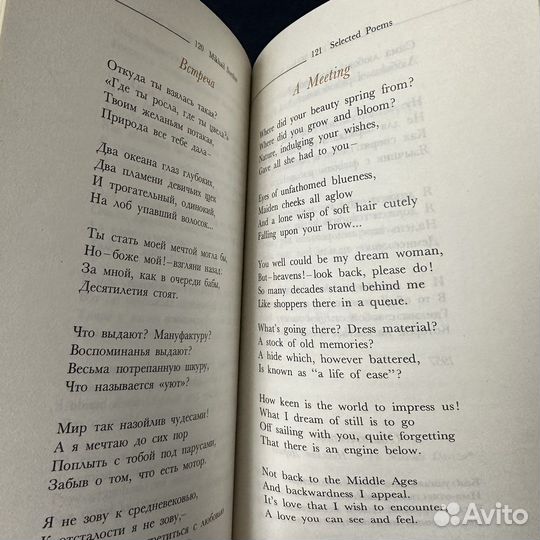 120 Mikhail
Встреча
Откуда ты взялась такая?
«Где ты росла, где ты цвела?»
Твоим желаньям потакая,
Природа все тебе дала—
Два океана глаз глубоких,
Два пламени девичьих щек
И трогательный, одинокий,
На лоб упавший волосок...
Ты стать моей мечтой могла бы,
Но—боже мой!—взгляни назад:
За мной, как в очереди бабы,
Десятилетия стоят.
Что выдают? Мануфактуру?
Воспоминанья выдают?
Весьма потрепанную шкуру,
Что называется «уют»?
Мир так назойлив чудесами!
А я мечтаю до сих пор
Поплыть с тобой под парусами,
Забыв о том, что есть мотор.
Я не зову к средневековью,
К отсталости я не зову,—
с любовью
121 Selected Poems
A Meeting
Where did your beauty spring from?
Where did you grow and bloom?
Nature, indulging your wishes,
Gave all she had to you—
Eyes of unfathomed blueness,
Maiden cheeks all aglow
And a lone wisp of soft hair cutely
Falling upon your brow...
You well could be my dream woman,
But—heavens!—look back, please do!
So many decades stand behind me
Like shoppers there in a queue.
What's going there? Dress material?
A stock of old memories?
A hide which, however battered,
Is known as "a life of ease"?
How keen is the world to impress us!
What I dream of still is to go
Off sailing with you, quite forgetting
That there is an engine below.
Not back to the Middle Ages
And backwardness I appeal.
It's love that I wish to encounter,
A love you can see and feel.
1957
Avito